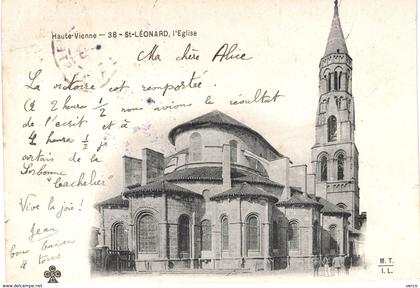 Haute-Vienne - 38 - St-LÉONARD, l'Eglise
Ma chère Alice
La victoire est remportée.
à 2 heures 1/2 nous avions le résultat
de l'écrit et à
4 heures 1/2 je
sortais de la
Sorbonne
"bachelier"
Vive la joie!
Jean
bons baisers
à tous
M.T.
I.L.
www.delcampe.net